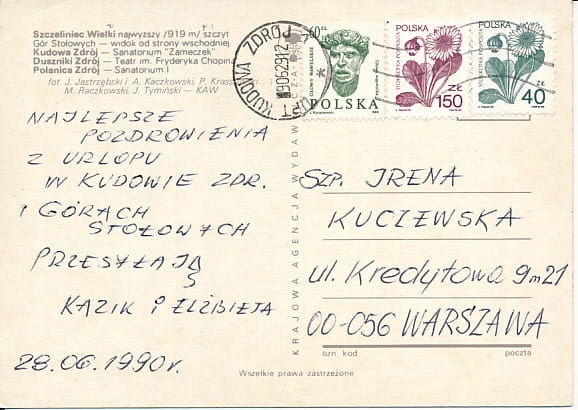 Szczeliniec Wielki najwyższy /919 m/ szczyt
Gór Stołowych — widok od strony wschodniej
Kudowa Zdrój — Sanatorium "Zameczek"
Duszniki Zdrój — Teatr im. Fryderyka Chopina
Polanica Zdrój — Sanatorium I
fot. J. Jastrzębski i A. Kaczkowski, P. Krass
M. Raczkowski, J. Tymiński — KAW
KUDOWA ZDRÓJ
60 zł
GŁOWY WAWELSKIE
POLSKA
POLSKA
150 zł
POLSKA
40 zł
NAJLEPSZE
POZDROWIENIA
Z URLOPU
W KUDOWIE ZDR.
I GÓRACH
STOŁOWYCH
PRZESYŁAJĄ
KAZIK i ELŻBIETA
28.06.1990r.
KRAJOWA AGENCJA WYDAW
SZP. IRENA
KUCZEWSKA
ul. Kredytowa 9m21
00-056 WARSZAWA
ozn kod poczta
Wszelkie prawa zastrzeżone